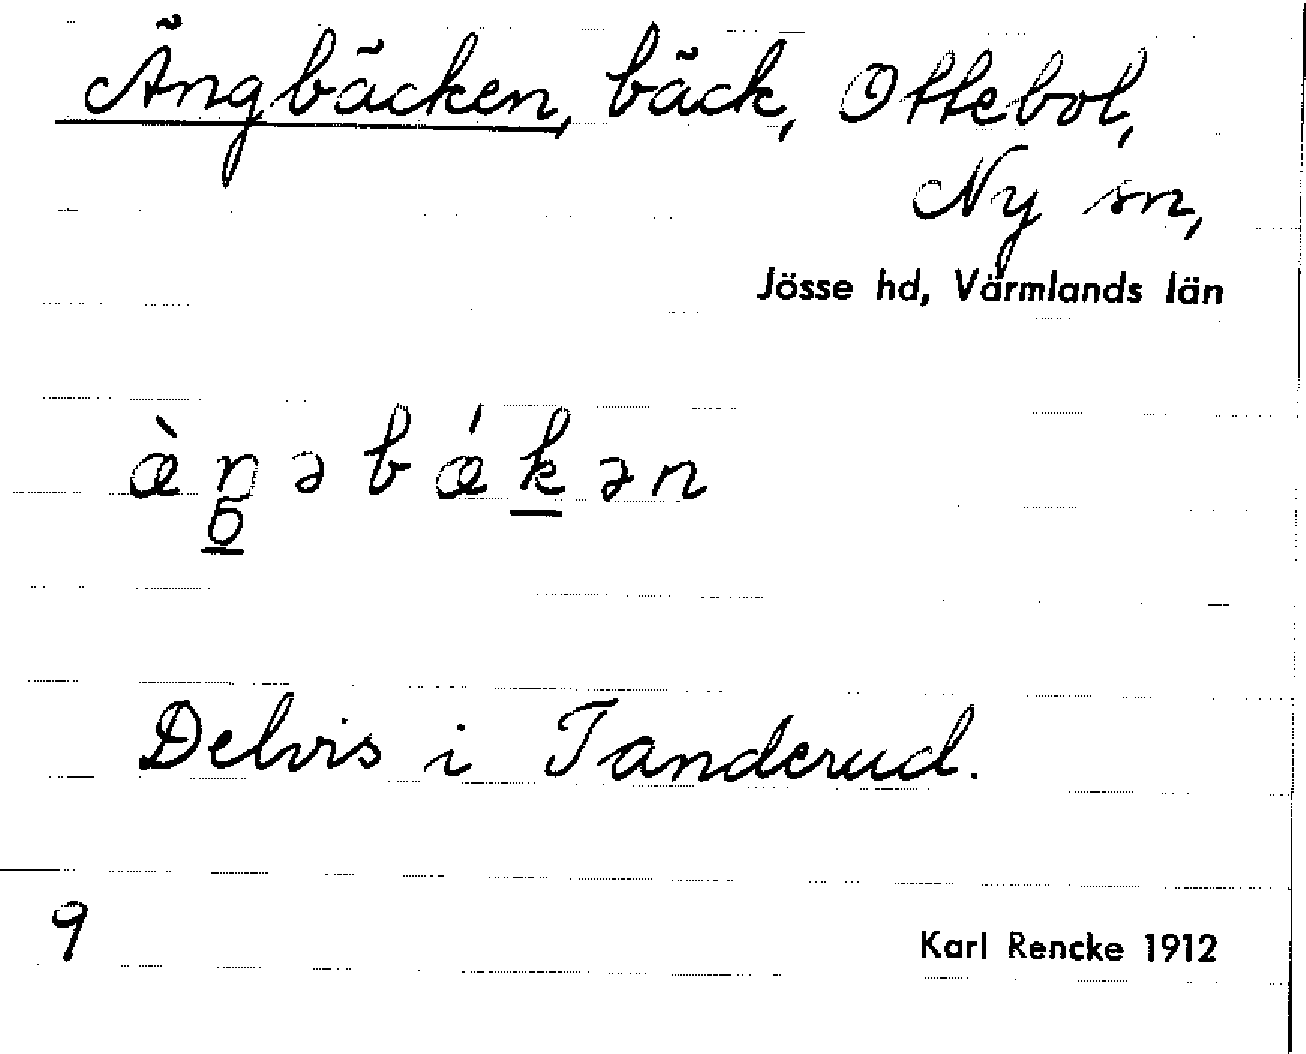 Ängbäcken, bäck, Ottebol,
Ny sn,
Jösse hd, Värmlands län
æ̀ŋəbǽkən
Delvis i Tanderud.
9
Karl Rencke 1912